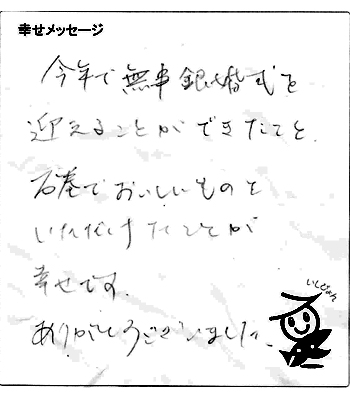 幸せメッセージ
今年で無事銀婚式を
迎えることができたこと。
石巻でおいしいものを
いただけたことが
幸せです。
ありがとうございました。
いしぴょん